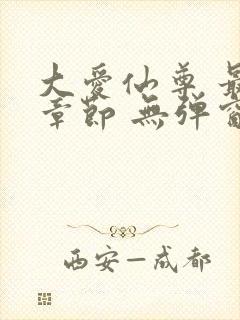 大爱仙尊 最
章节 無弹窗
西安—成都